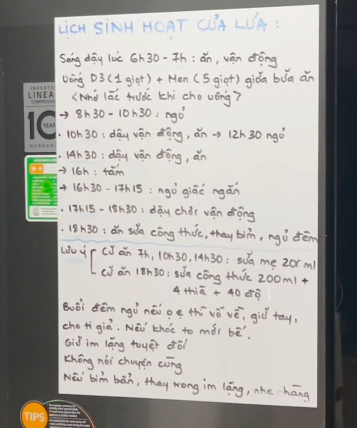 LỊCH SINH HOẠT CỦA LÚA :
Sáng dậy lúc 6h30 - 7h : ăn, vận động
Uống D3 (1 giọt) + Men (5 giọt) giữa bữa ăn
<Nhớ lắc trước khi cho uống>
→ 8h30 - 10h30 : ngủ
. 10h30 : dậy vận động, ăn → 12h30 ngủ
. 14h30 : dậy vận động, ăn
→ 16h : tắm
→ 16h30 - 17h15 : ngủ giấc ngắn
. 17h15 - 18h30 : dậy chơi vận động
. 18h30 : ăn sữa công thức, thay bỉm, ngủ đêm
Lưu ý [ Cữ ăn 7h, 10h30, 14h30 : sữa mẹ 200ml
Cữ ăn 18h30 : sữa công thức 200ml +
4 thìa + 40 độ
Buổi đêm ngủ nếu ọ ẹ thì vỗ về, giữ tay,
cho ti giả. Nếu khóc to mới bế.
Giữ im lặng tuyệt đối
Không nói chuyện cùng
Nếu bỉm bẩn, thay trong im lặng, nhẹ nhàng
INVERTER
LINEA
COMPRESSOR
10
YEAR
TIPS